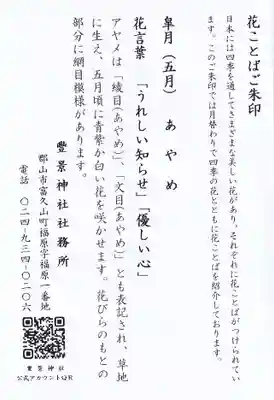 花ことばご朱印
日本には四季を通してさまざまな美しい花があり、それぞれに花ことばがつけられてい
ます。このご朱印では月替わりで四季の花とともに花ことばを紹介しております。
皐月（五月）　あやめ
花言葉　「うれしい知らせ」「優しい心」
アヤメは「綾目(あやめ)」、「文目(あやめ)」とも表記され、草地
に生え、五月頃に青紫か白い花を咲かせます。花びらのもとの
部分に網目模様があります。
豊景神社社務所
郡山市富久山町福原字福原一番地
電話　〇二四-九三四-〇二〇六
豊景神社
公式アカウントQR